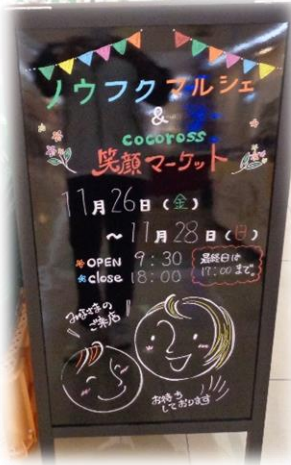 ノウフクマルシェ
&
cocoross
笑顔マーケット
11月26日(金)
～11月28日(日)
OPEN 9:30
close 18:00
最終日は
17:00まで。
みなさまの
ご来店
お待ち
しております